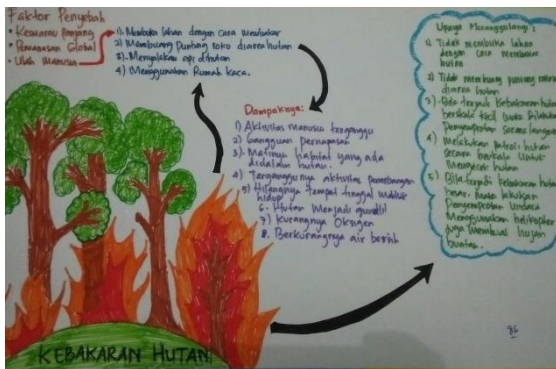 Faktor Penyebab
• Kemarau Panjang
• Pemanasan Global
• Ulah Manusia
1). Membuka lahan dengan cara membakar
2) Membuang Puntung roko diarea hutan
3). Menyalakan api dihutan
4) Menggunakan Rumah kaca.
Dampaknya:
1) Aktivitas manusia terganggu
2) Gangguan pernapasan
3). Matinya habitat yang ada
didalam hutan.
4) Terganggunya aktivitas penerbangan
5) Hilangnya tempat tinggal makhluk
hidup
6. Hutan Menjadi gundul
7) Kurangnya Oksigen
8. Berkurangnya air bersih
Upaya Menanggulangi:
1) Tidak membuka lahan
dengan cara membakar
hutan
2) Tidak membuang puntung
diarea hutan
3) Bila terjadi kebakaran hutan
berskala kecil
Penyemprotan secara langsung
4) Melakukan Patroli hutan
secara berkala Untuk
Mengecek hutan
5) Bila terjadi kebakaran hutan
besar, Maka lakukan
Penyemprotan undara
Menggunakan helikopter
juga Membuat hujan
buatan.
KEBAKARAN HUTAN
86